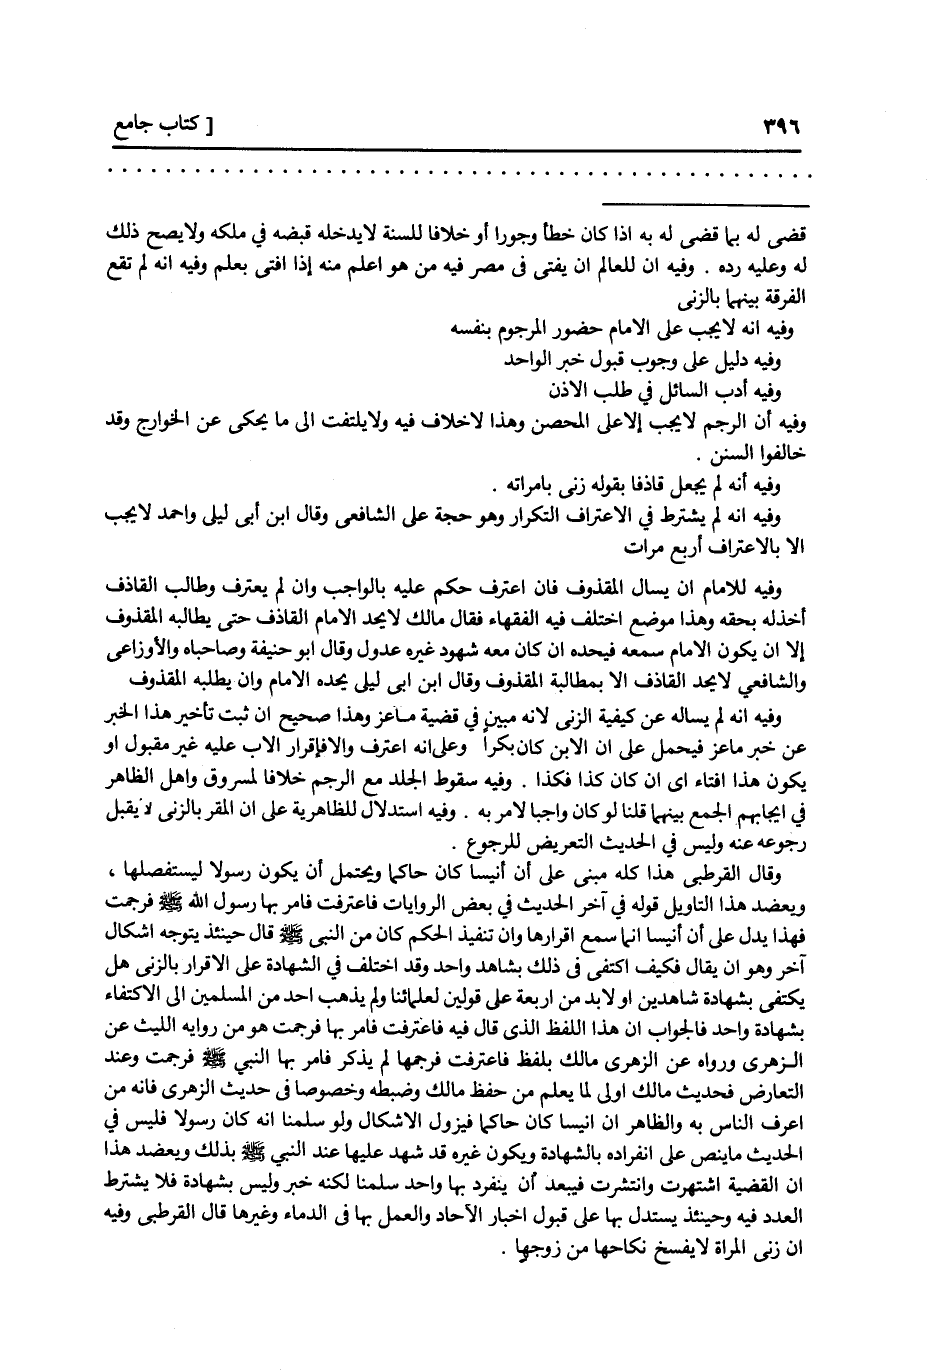 ٣٩٦ [ كتاب جامع
قضى له بما قضى له به اذا كان خطأ وجورا أو خلافا للسنة لايدخله قبضه في ملكه ولايصح ذلك
له وعليه رده . وفيه ان للعالم ان يفتى فى مصر فيه من هو اعلم منه إذا افتى بعلم وفيه انه لم تقع
الفرقة بينهما بالزنى
وفيه انه لايجب على الامام حضور المرجوم بنفسه
وفيه دليل على وجوب قبول خبر الواحد
وفيه أدب السائل في طلب الاذن
وفيه أن الرجم لايجب إلاعلى المحصن وهذا لاخلاف فيه ولايلتفت الى ما يحكى عن الخوارج وقد
خالفوا السنن .
وفيه أنه لم يجعل قاذفا بقوله زنى بامراته .
وفيه انه لم يشترط في الاعتراف التكرار وهو حجة على الشافعى وقال ابن أبى ليلى واحمد لايجب
الا بالاعتراف أربع مرات
وفيه للامام ان يسال المقذوف فان اعترف حكم عليه بالواجب وان لم يعترف وطالب القاذف
أخذله بحقه وهذا موضع اختلف فيه الفقهاء فقال مالك لايحد الامام القاذف حتى يطالبه المقذوف
إلا ان يكون الامام سمعه فيحده ان كان معه شهود غيره عدول وقال ابو حنيفة وصاحباه والأوزاعى
والشافعي لايحد القاذف الا بمطالبة المقذوف وقال ابن ابى ليلى يحده الامام وان يطلبه المقذوف
وفيه انه لم يساله عن كيفية الزنى لانه مبين في قضية ماعز وهذا صحيح ان ثبت تأخير هذا الخبر
عن خبر ماعز فيحمل على ان الابن كان بكراً وعلى انه اعترف والافإقرار الاب عليه غير مقبول او
يكون هذا افتاء اى ان كان كذا فكذا . وفيه سقوط الجلد مع الرجم خلافا لمسروق واهل الظاهر
في ايجابهم الجمع بينهما قلنا لو كان واجبا لامر به . وفيه استدلال للظاهرية على ان المقر بالزنى لا يقبل
رجوعه عنه وليس في الحديث التعريض للرجوع .
وقال القرطبى هذا كله مبنى على أن أنيسا كان حاكما ويحتمل أن يكون رسولا ليستفصلها ،
ويعضد هذا التاويل قوله في آخر الحديث في بعض الروايات فاعترفت فامر بها رسول الله ﷺ فرجمت
فهذا يدل على أن أنيسا انما سمع اقرارها وان تنفيذ الحكم كان من النبى ﷺ قال حينئذ يتوجه اشكال
آخر وهو ان يقال فكيف اكتفى فى ذلك بشاهد واحد وقد اختلف في الشهادة على الاقرار بالزنى هل
يكتفى بشهادة شاهدين او لابد من اربعة على قولين لعلمائنا ولم يذهب احد من المسلمين الى الاكتفاء
بشهادة واحد فالجواب ان هذا اللفظ الذى قال فيه فاعترفت فامر بها فرجمت هو من روايه الليث عن
الزهرى ورواه عن الزهرى مالك بلفظ فاعترفت فرجمها لم يذكر فامر بها النبي ﷺ فرجمت وعند
التعارض فحديث مالك اولى لما يعلم من حفظ مالك وضبطه وخصوصا فى حديث الزهرى فانه من
اعرف الناس به والظاهر ان انيسا كان حاكما فيزول الاشكال ولو سلمنا انه كان رسولا فليس في
الحديث ماينص على انفراده بالشهادة ويكون غيره قد شهد عليها عند النبي ﷺ بذلك ويعضد هذا
ان القضية اشتهرت وانتشرت فيبعد أن ينفرد بها واحد سلمنا لكنه خبر وليس بشهادة فلا يشترط
العدد فيه وحينئذ يستدل بها على قبول اخبار الآحاد والعمل بها فى الدماء وغيرها قال القرطبى وفيه
ان زنى المراة لايفسخ نكاحها من زوجها .